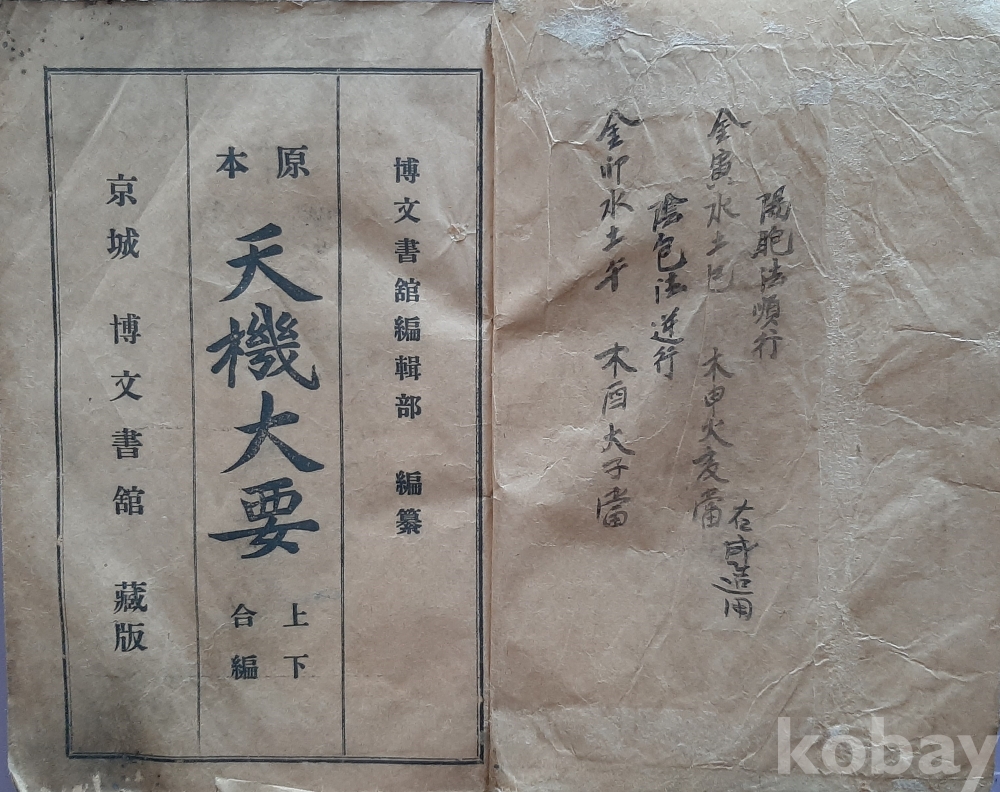 陽胞法順行
金寅水土巳 木申火亥當
右成造用
陰包法逆行
金卯水土午 木酉火子當
博文書舘編輯部 編纂
原本
天機大要
上下
合編
京城 博文書舘 藏版
kobay